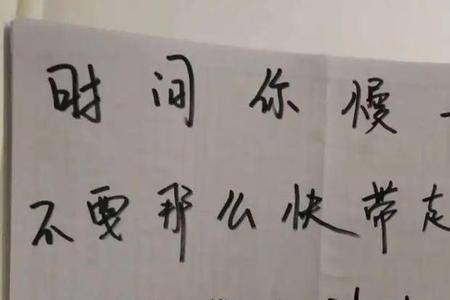 时间你慢
不要那么快带走